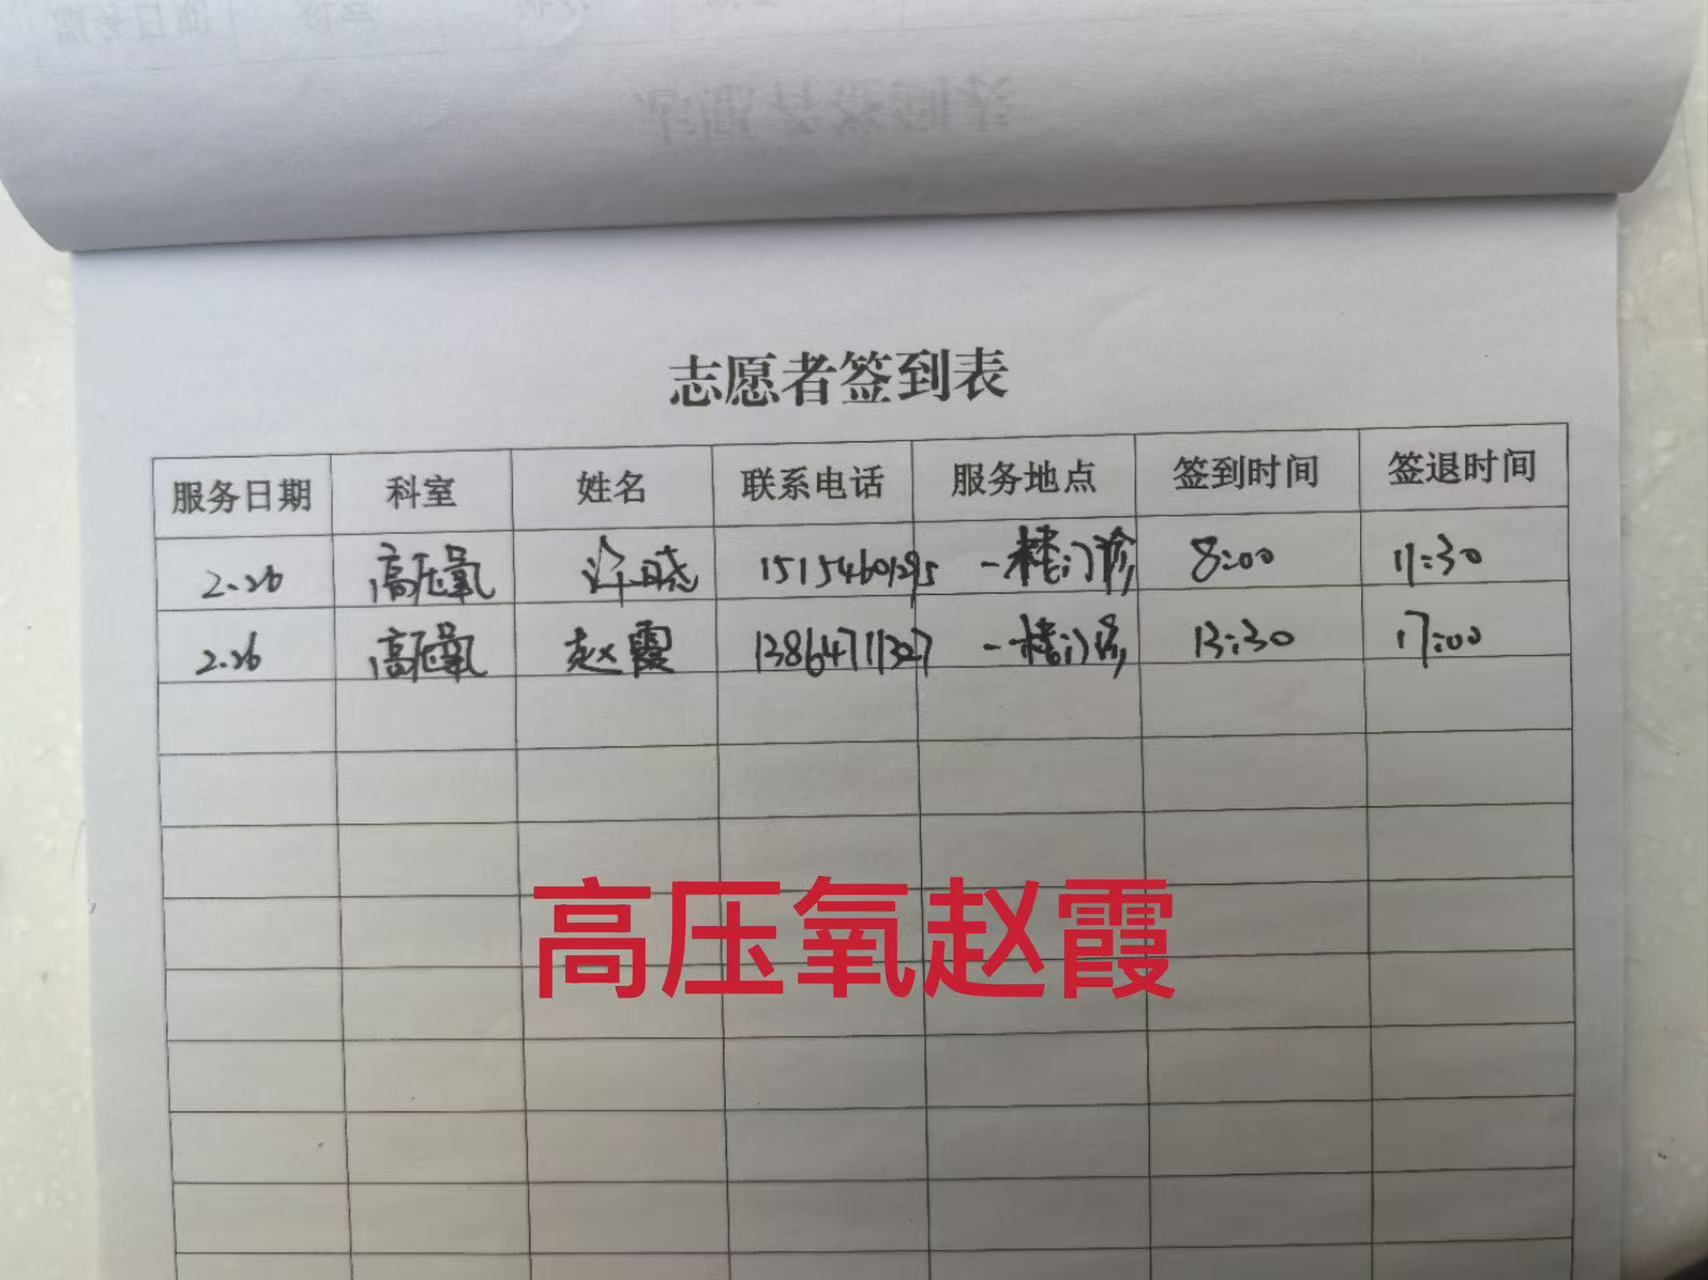 志愿者签到表
服务日期 科室 姓名 联系电话 服务地点 签到时间 签退时间
2.26 高压氧 许晓 15154601295 一楼门诊 8:00 11:30
2.26 高压氧 赵霞 13864711327 一楼门诊 13:30 17:00
高压氧赵霞